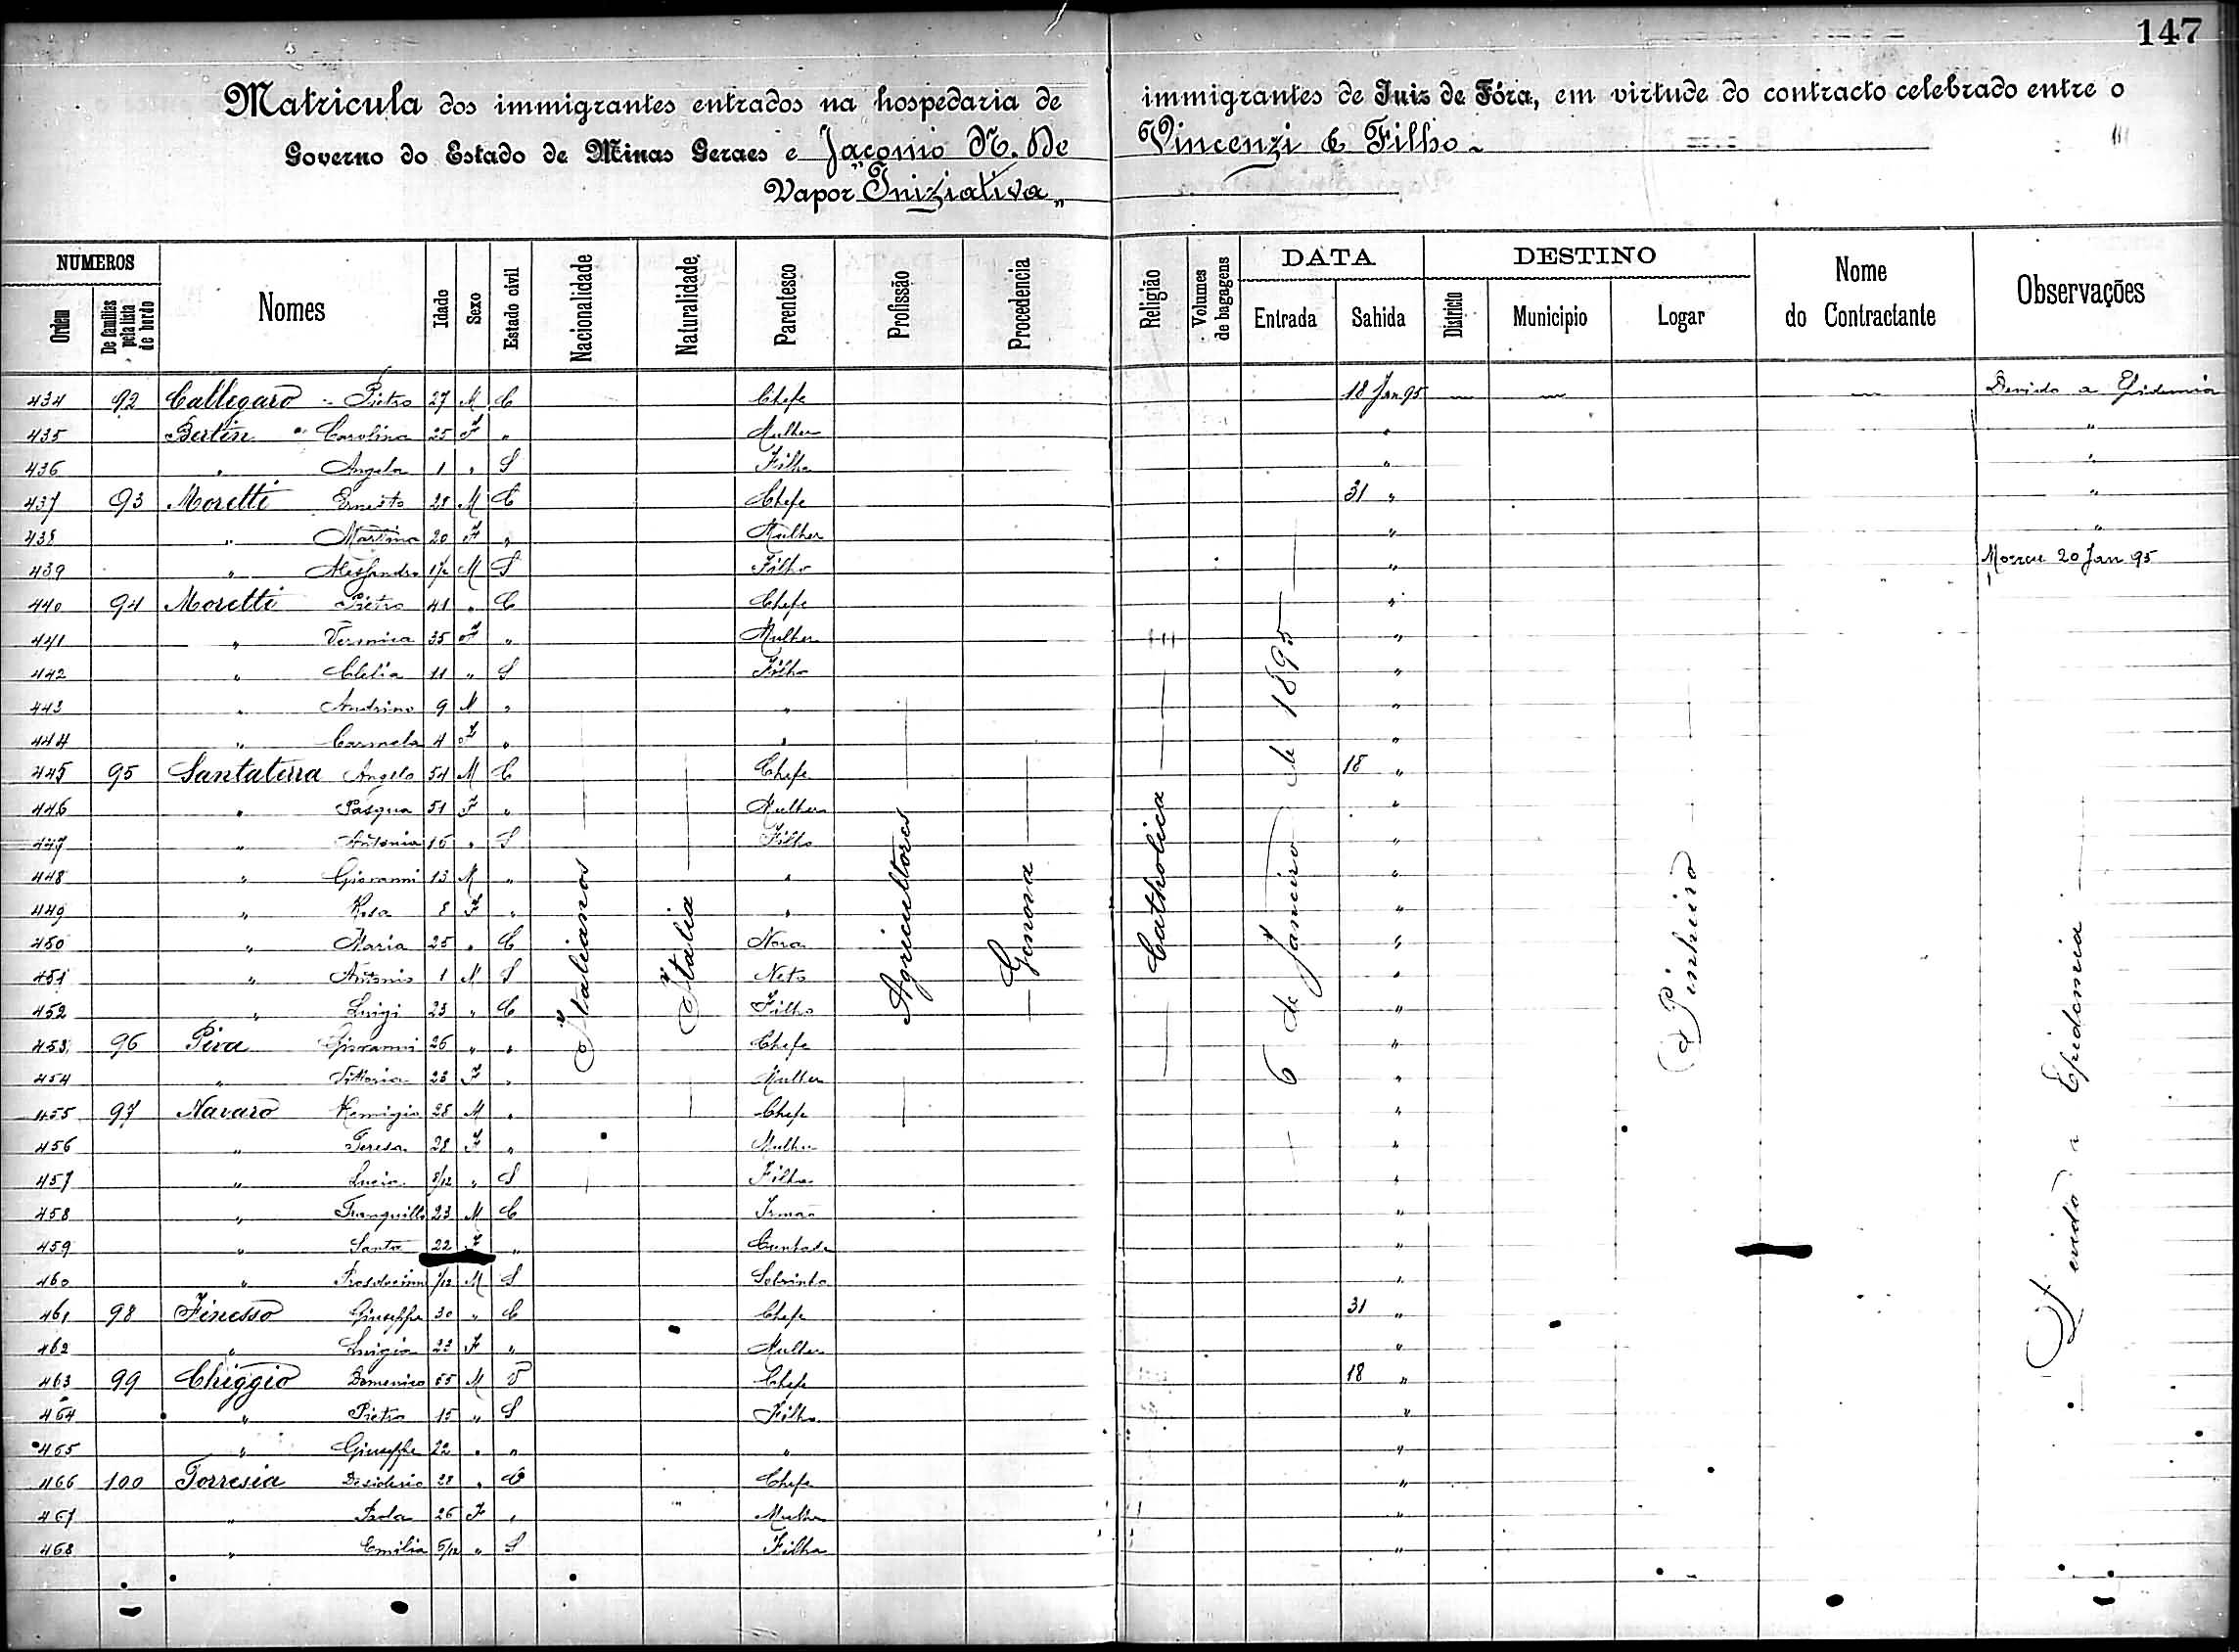 147
Matricula dos immigrantes entrados na hospedaria de immigrantes de Juiz de Fóra, em virtude do contracto celebrado entre o
Governo do Estado de Minas Geraes e Jacomo N. De Vincenzi & Filho
Vapor "Iniziativa"
NUMEROS DATA DESTINO
Ordem De familias pela lista de bordo Nomes Idade Sexo Estado civil Nacionalidade Naturalidade Parentesco Profissão Procedencia Religião Volumes de bagagens Entrada Sahida Districto Municipio Logar Nome do Contractante Observações
434 92 Callegaro Pietro 27 M C Chefe 18 Jan 95 Devido a Epidemia
435 Bertin Carolina 25 F " Mulher " "
436 " Angela 1 " S Filha " "
437 93 Moretti Ernesto 28 M C Chefe 31 " "
438 " Martina 20 F " Mulher " "
439 " Alessandro M S Filho " Morreu 20 Jan 95
440 94 Moretti Pietro 41 " C Chefe "
441 " Veronica 35 F " Mulher "
442 " Clelia 11 " S Filha "
443 " Andrino 9 M " " "
444 " Carmela 4 F " " "
445 95 Santaterra Angelo 54 M C Chefe 18 "
446 " Pasqua 51 F " Mulher "
447 " Antonia 16 " S Filha "
448 " Giovanni 13 M " " "
449 " Rosa 8 F " " "
450 " Maria 25 " C Nora "
451 " Antonio 1 M S Neto "
452 " Luigi 23 " C Filho "
453 96 Piva Giovanni 26 " " Chefe "
454 " Vittoria 23 F " Mulher "
455 97 Navaro Remigio 28 M " Chefe "
456 " Teresa 28 F " Mulher "
457 " Lucia 8/12 " S Filha "
458 " Tranquillo 23 M C Irmão "
459 " Santa 22 F " Cunhada "
460 " M S Sobrinho "
461 98 Finesso Giuseppe 30 " C Chefe 31 "
462 " Luigia 23 F " Mulher "
463 99 Chiggio Domenico 55 M V Chefe 18 "
464 " Pietro 15 " S Filho "
465 " Giuseppe 22 " " " "
466 100 Torresia Desiderio 28 " C Chefe "
467 " 26 F " Mulher "
468 " Emilia 5/12 " S Filha "
Italianos
Italia
Agricultores
Genova
Catholica
6 de Janeiro de 1895
Pinheiro
Devido a Epidemia